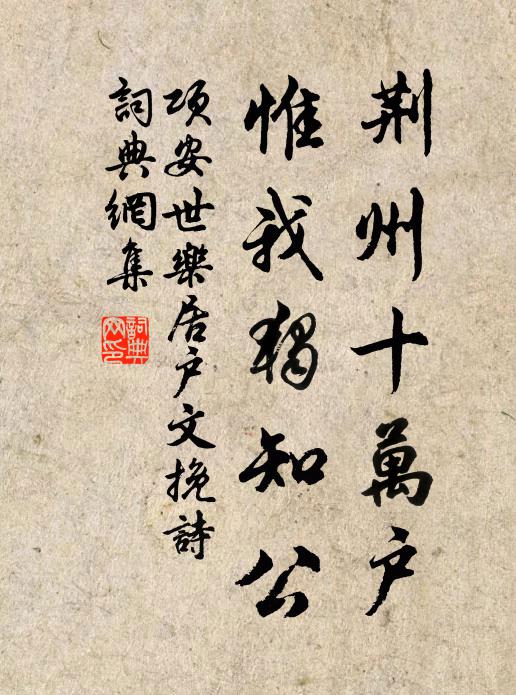 荆州十萬户
惟我獨知公
項安世樂居户文挽詩
詞典網集
詞典網印